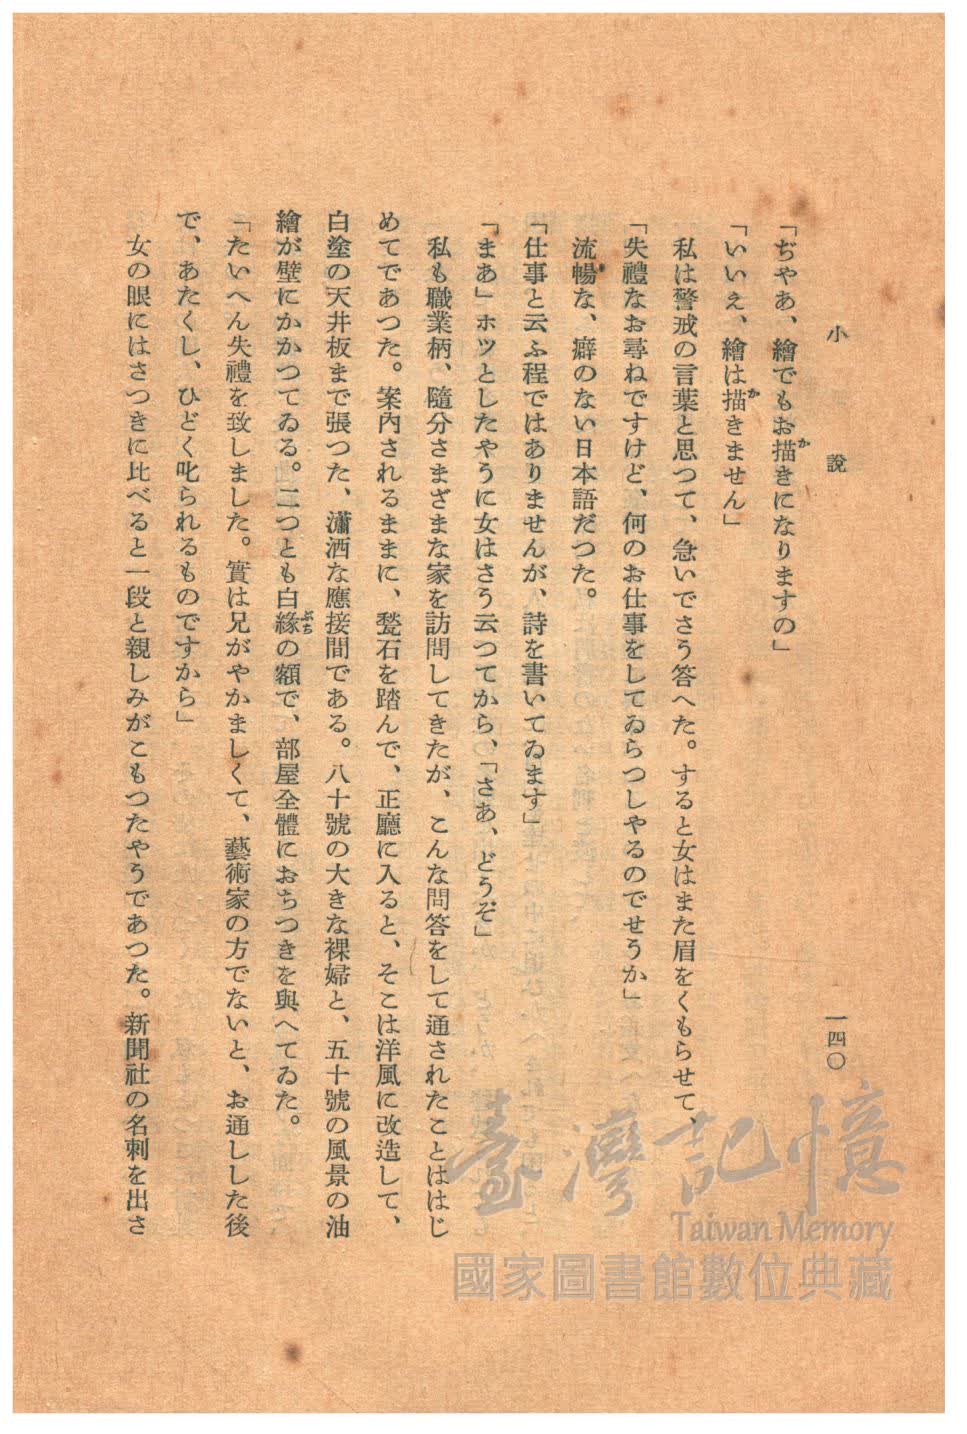 小說
一四〇
「ぢやあ、繪でもお描きになりますの」
「いいえ、繪は描きません」
私は警戒の言葉と思つて、急いでさう答へた。すると女はまた眉をくもらせて、
「失禮なお尋ねですけど、何のお仕事をしてゐらつしやるのでせうか」
流暢な、癖のない日本語だつた。
「仕事と云ふ程ではありませんが、詩を書いてゐます」
「まあ」ホツとしたやうに女はさう云つてから、「さあ、どうぞ」
私も職業柄、隨分さまざまな家を訪問してきたが、こんな問答をして通されたことははじ
めてであつた。案內されるままに、甃石を踏んで、正廳に入ると、そこは洋風に改造して、
白塗の天井板まで張つた、瀟洒な應接間である。八十號の大きな裸婦と、五十號の風景の油
繪が壁にかかつてゐる。二つとも白緣の額で、部屋全體におちつきを與へてゐた。
「たいへん失禮を致しました。實は兄がやかましくて、藝術家の方でないと、お通しした後
で、あたくし、ひどく叱られるものですから」
女の眼にはさつきに比べると一段と親しみがこもつたやうであつた。新聞社の名刺を出さ
臺灣記憶
Taiwan Memory
國家圖書館數位典藏